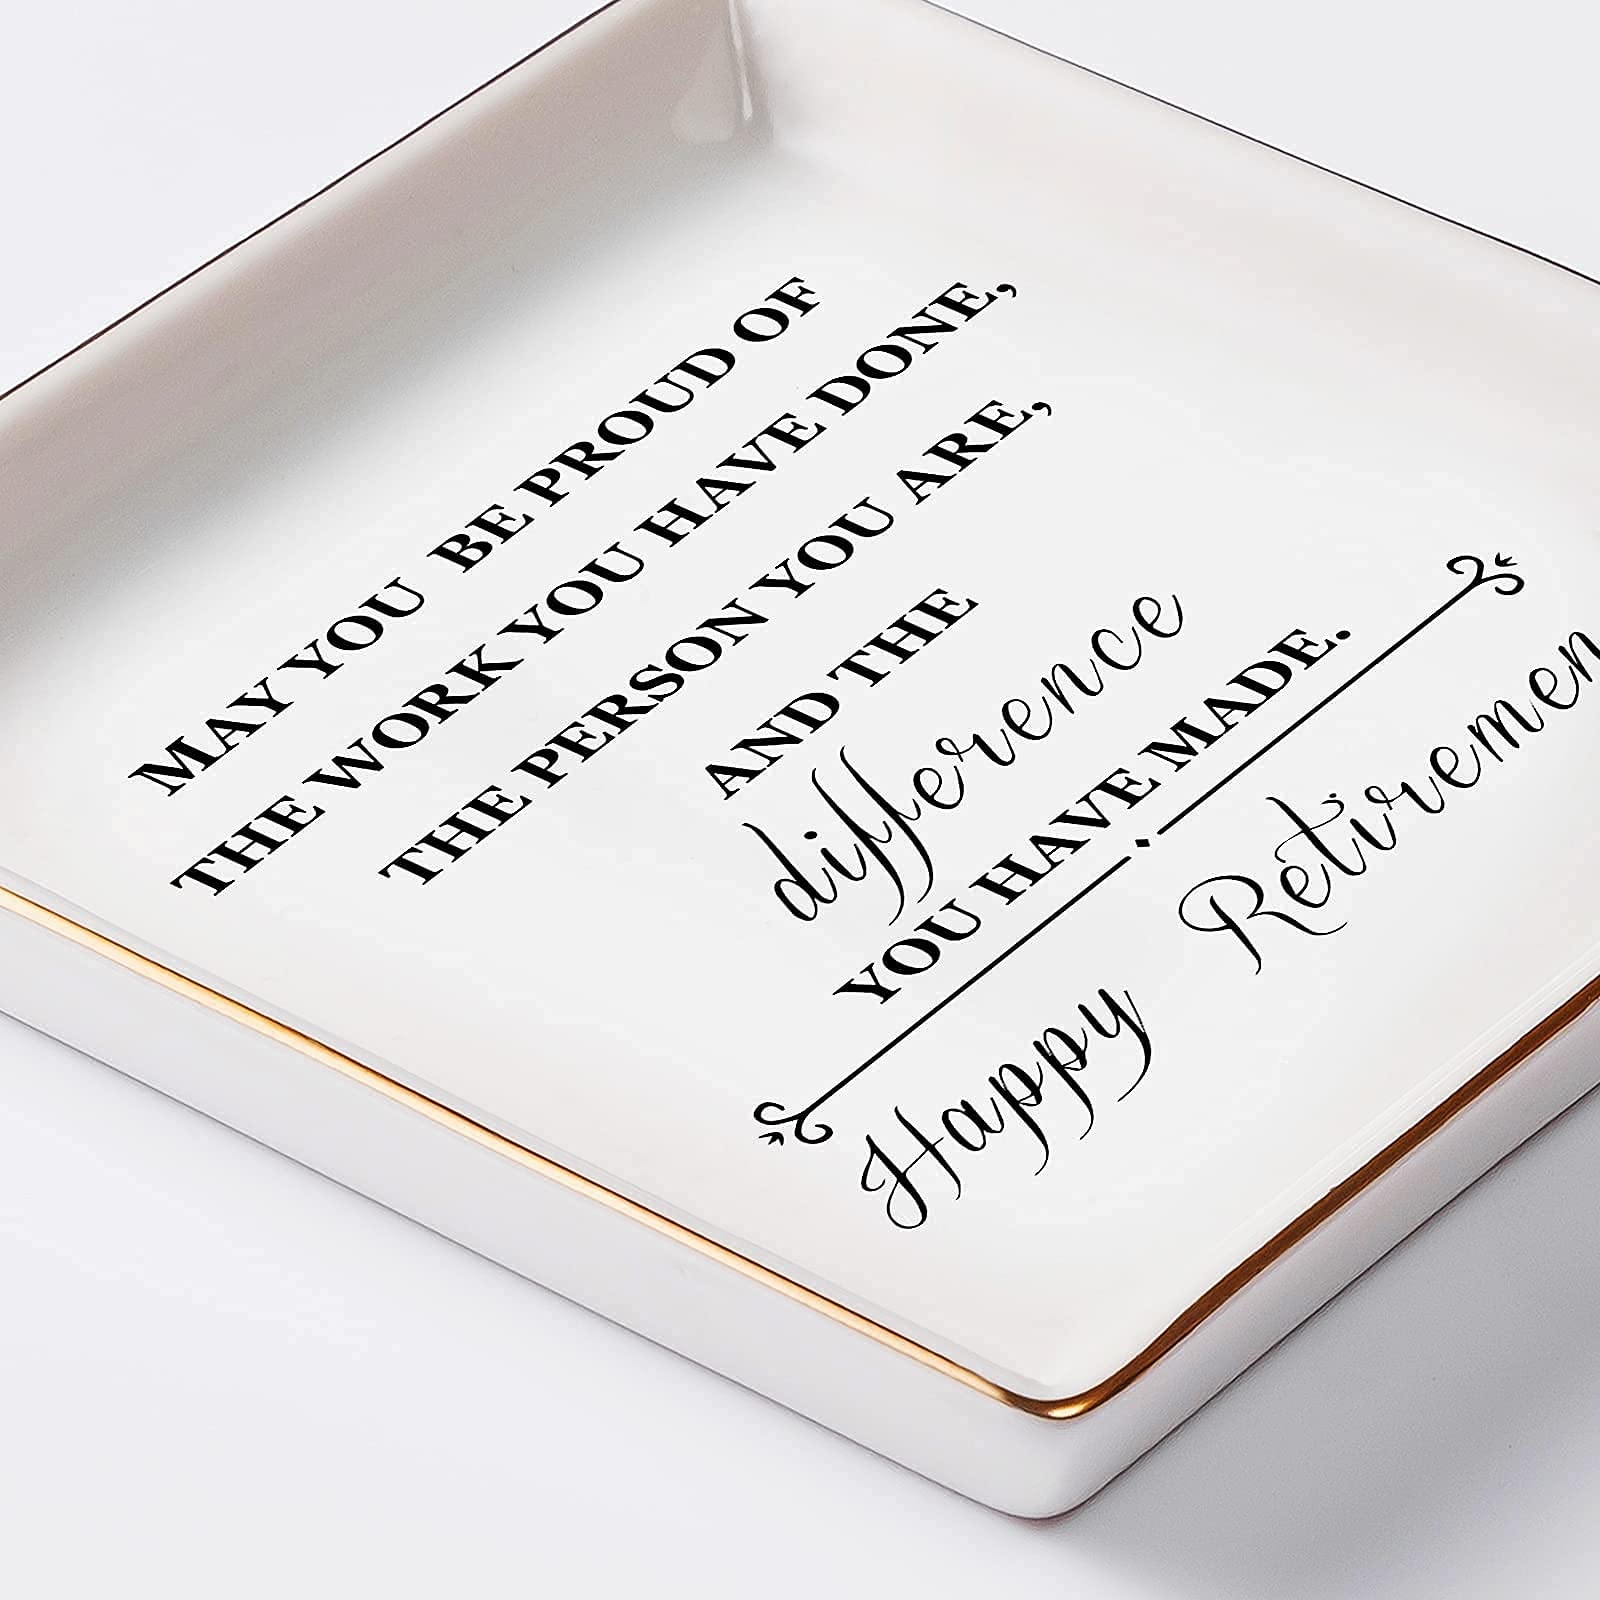 MAY YOU BE PROUD OF
THE WORK YOU HAVE DONE,
THE PERSON YOU ARE,
AND THE
difference
YOU HAVE MADE.
Happy Retiremen